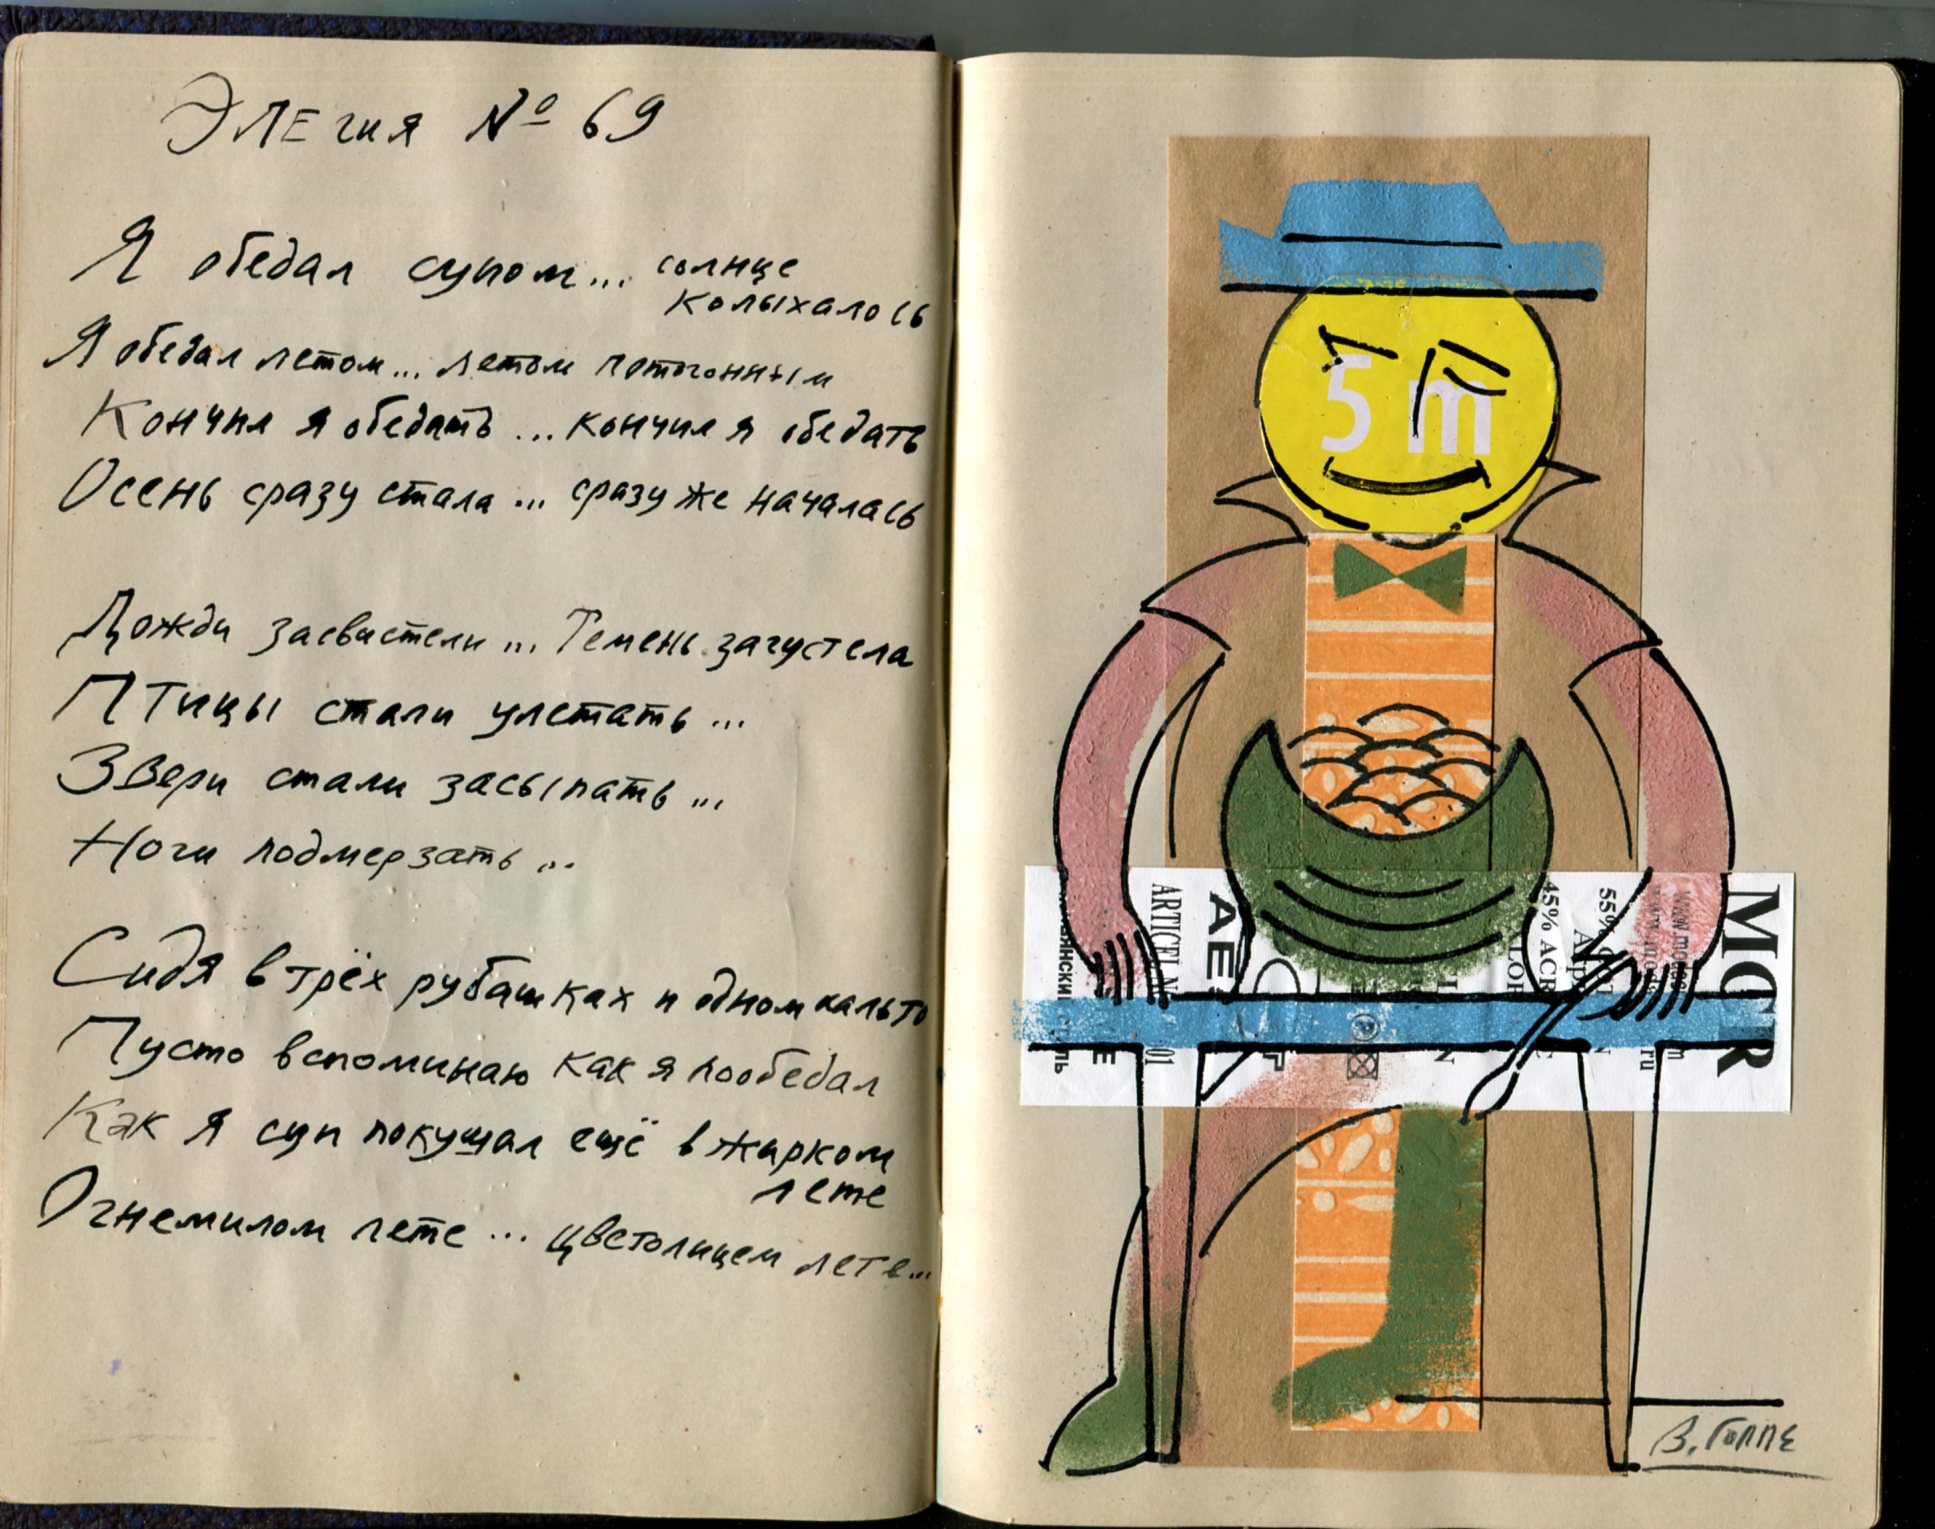 Элегия № 69
Я обедал супом... солнце
колыхалось
Я обедал летом... летом потогонным
Кончил я обедать... кончил я обедать
Осень сразу стала... сразу же началась
Дожди засвистели... Темень загустела
Птицы стали улетать...
Звери стали засыпать...
Ночи подмерзать...
Сидя в трёх рубашках и одном пальто
Пусто вспоминаю как я пообедал
Как я суп покушал ещё в жарком
лете
Огнемилом лете... цветолицем лете...
5 m
MCR
55%
45% ACR
ARTICEL N
01
В. Гоппе